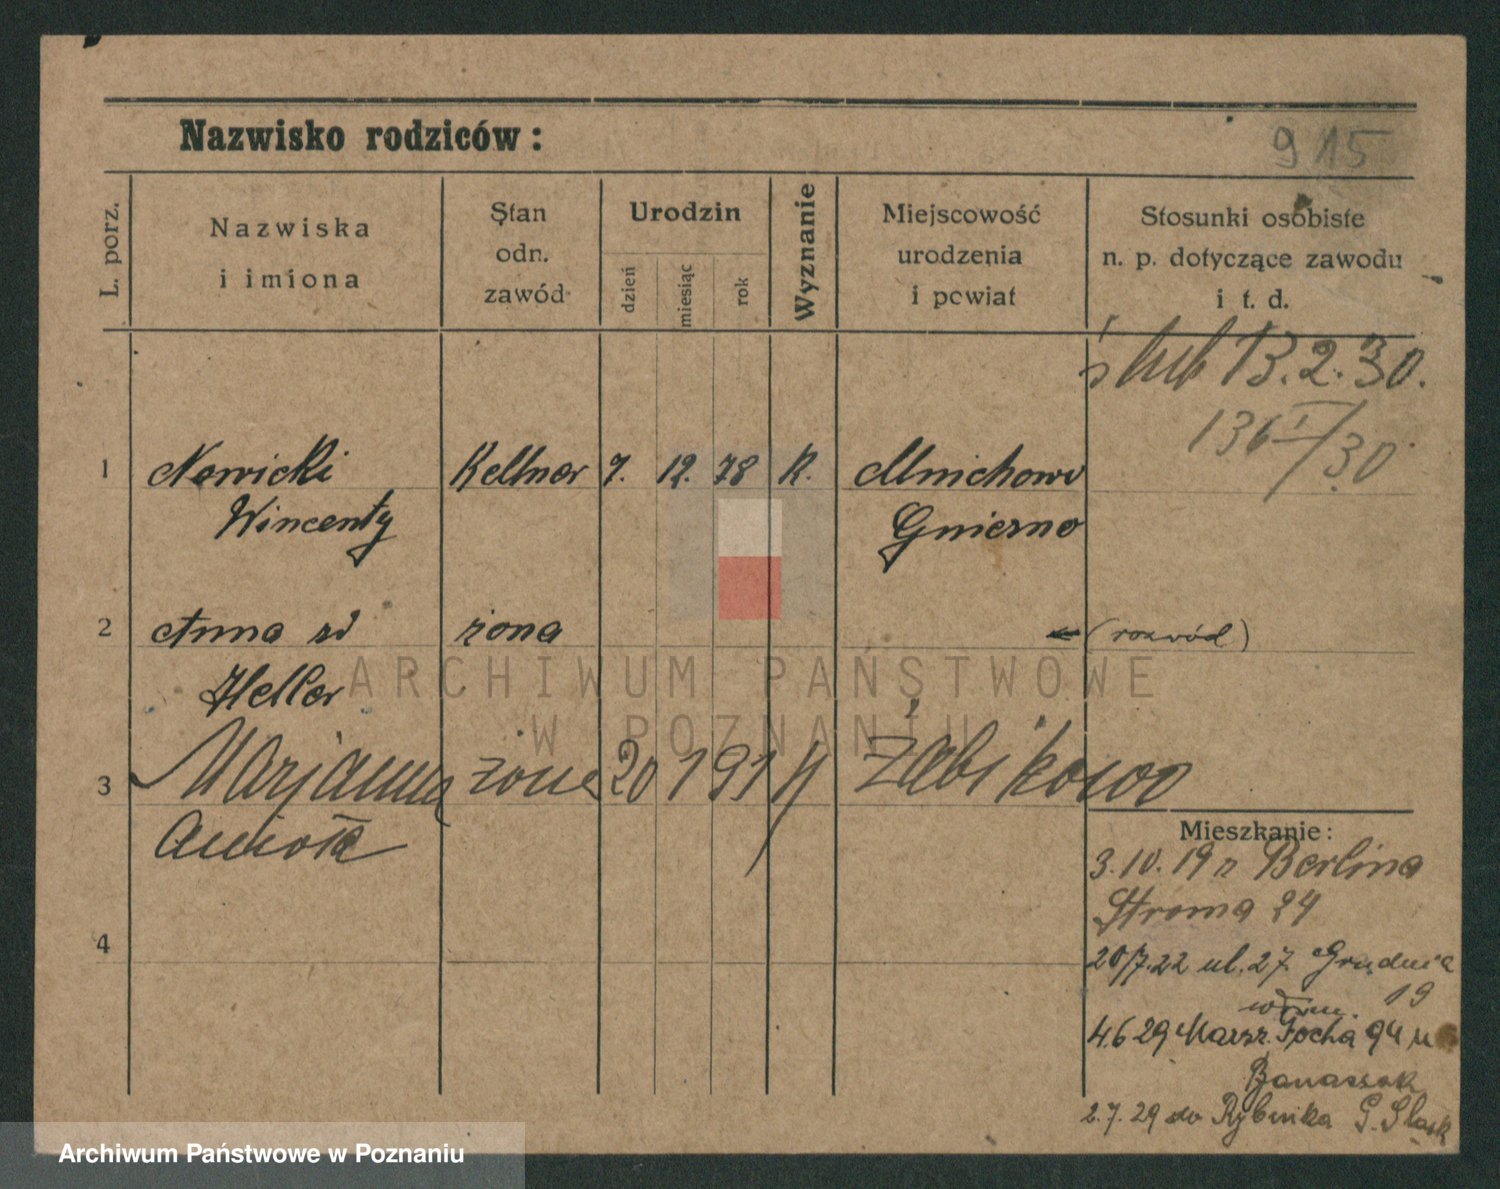 Nazwisko rodziców:
915
L. porz.
Nazwiska
i imiona
Stan
odn.
zawód
Urodzin
dzień
miesiąc
rok
Wyznanie
Miejscowość
urodzenia
i powiat
Stosunki osobiste
n. p. dotyczące zawodu
i t. d.
ślub 13.2.30.
136 I/30
1 Nowicki Kellner 7. 12. 78 K. Mnichowo
Wincenty Gniezno
2 Anna zd żona (rozwód)
Heller
3 Marjanna żona 20 1 91 Żabikowo
Anioła
4
Mieszkanie:
3.10.19 z Berlina
Stroma 24
20/7.22 ul. 27 Grudnia
19
4.6 29 Marsz. Focha 94 u
Banaszak
2.7.29 do Rybnika G. Śląsk
ARCHIWUM PAŃSTWOWE
W POZNANIU
Archiwum Państwowe w Poznaniu